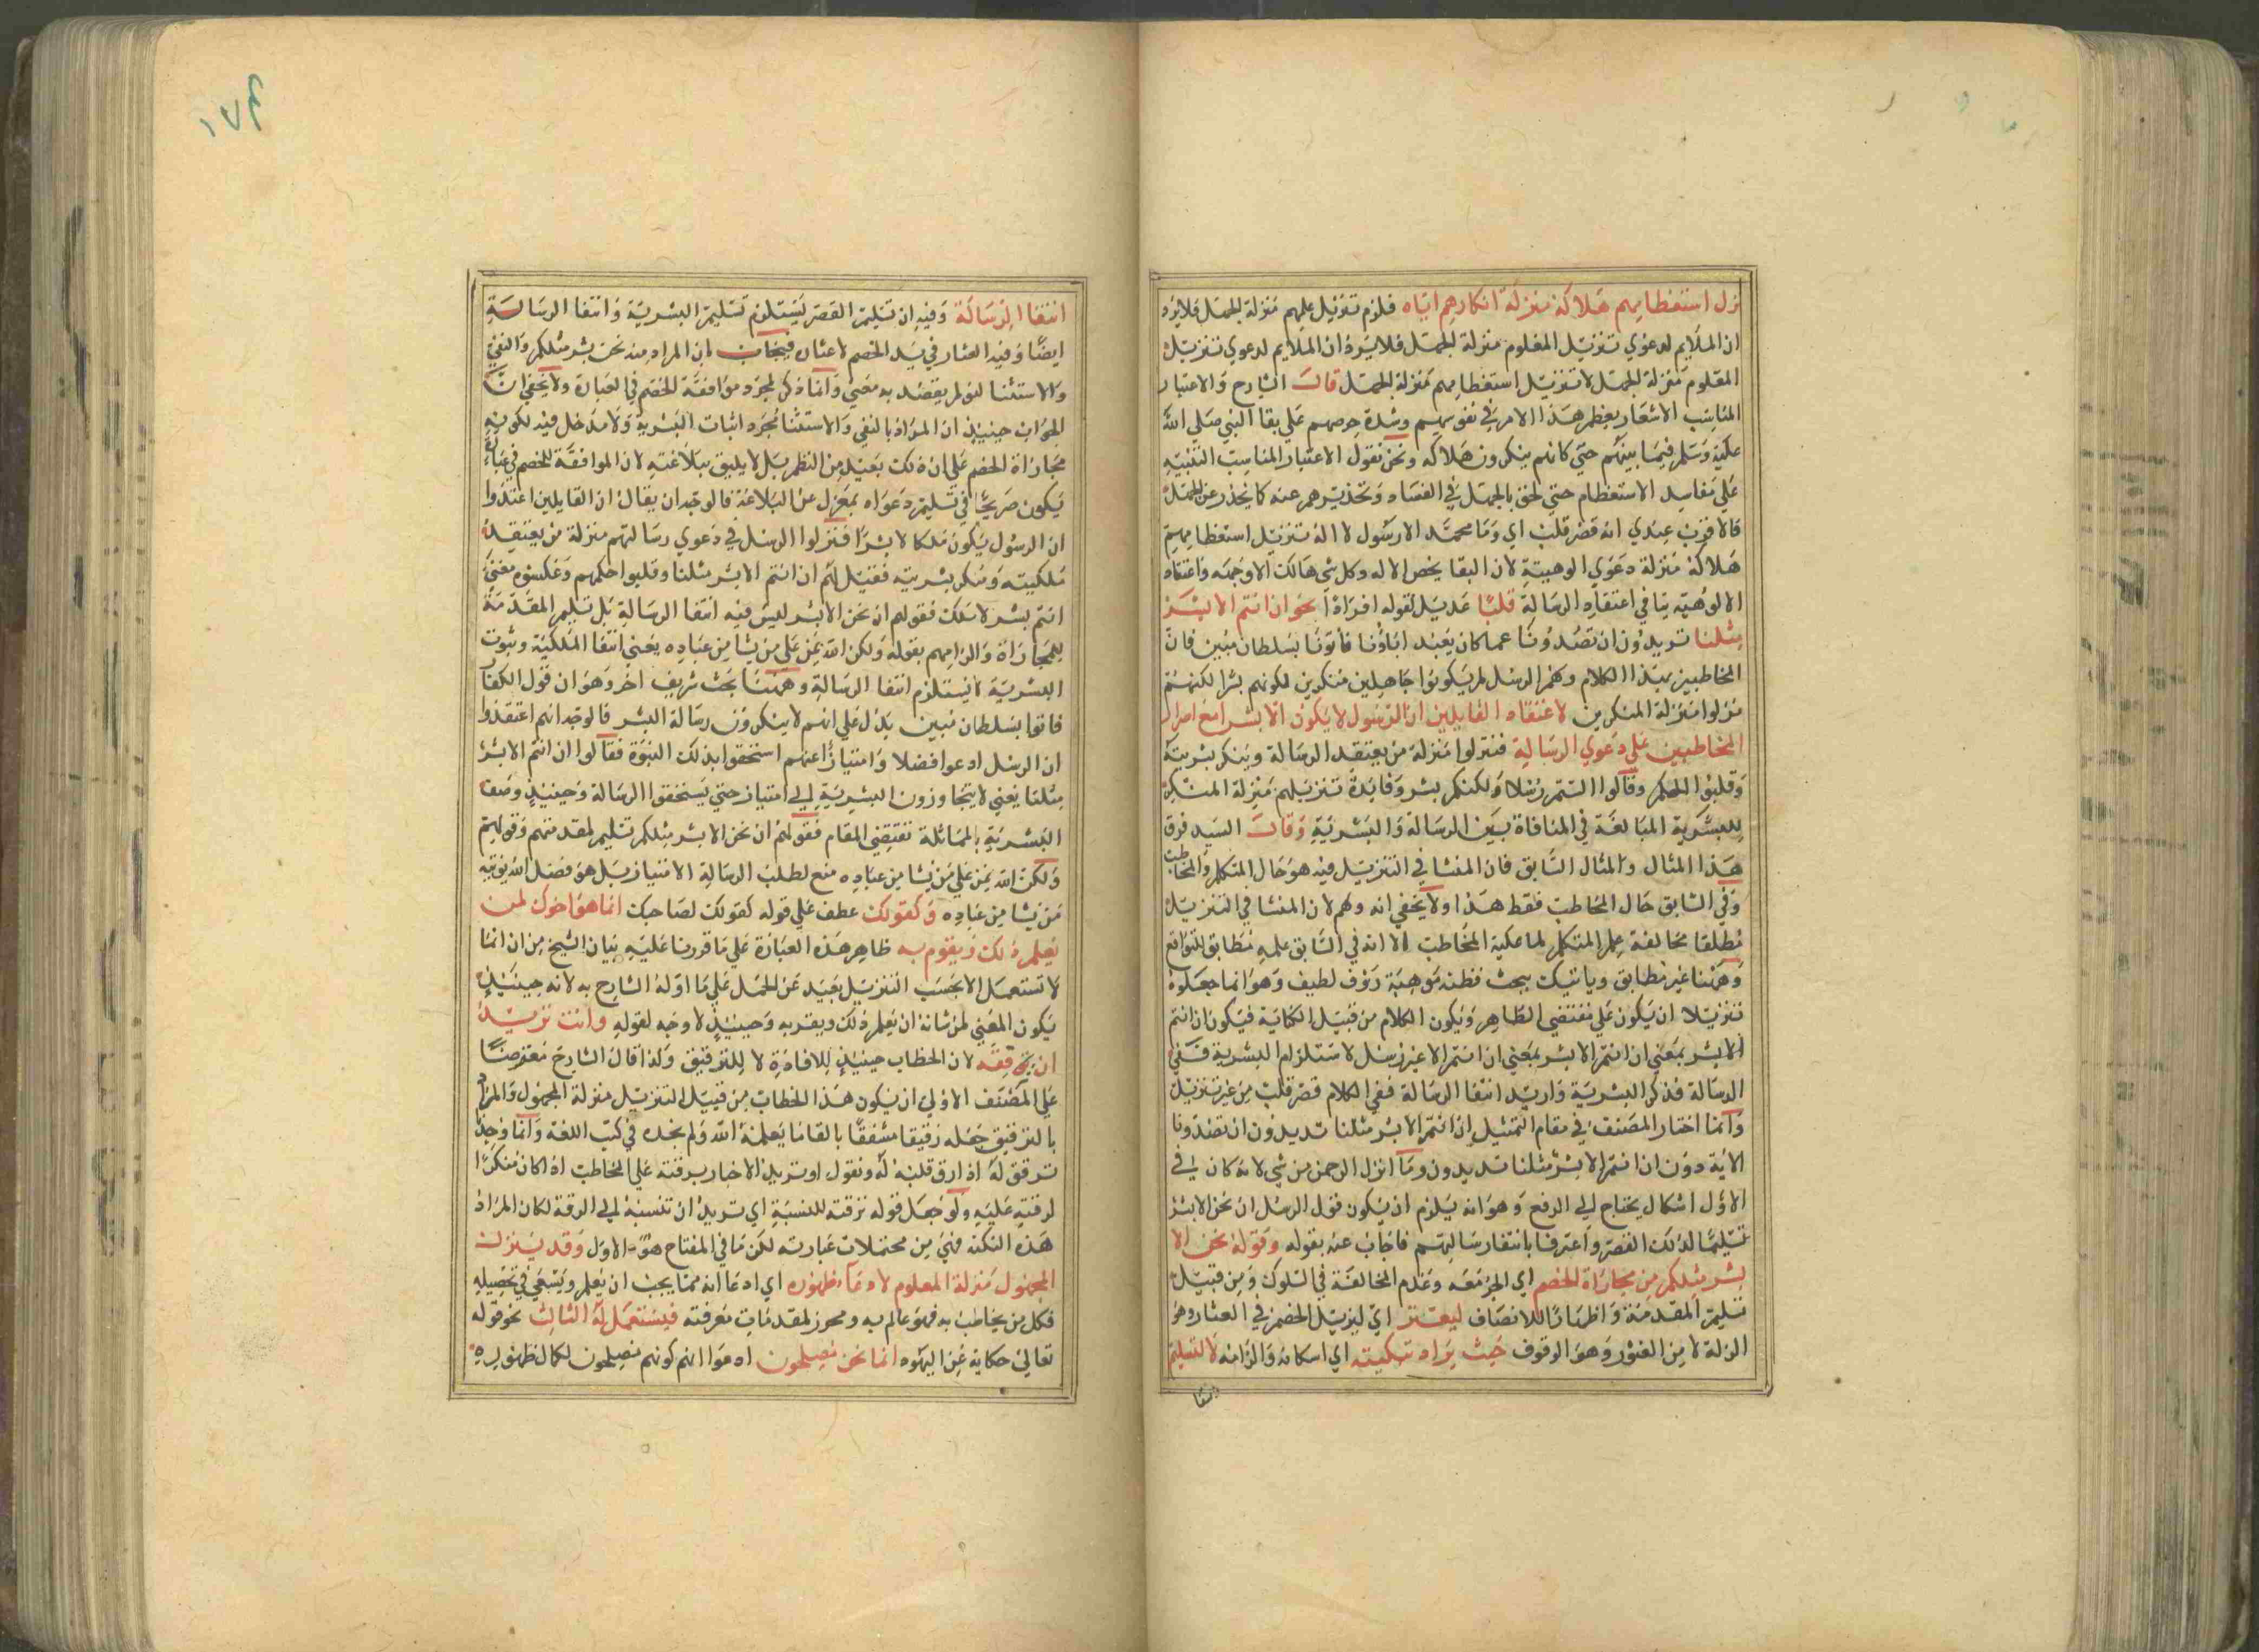 نزل استعظامهم هلاكه منزلة انكارهم اياه فلزم تنزيل علمهم منزلة الجهل فلا يرد
ان الملايم لدعوي تنزيل المعلوم منزلة الجهل فلا يرد ان الملايم لدعوي تنزيل
المعلوم منزلة الجهل لا تنزيل استعظامهم منزلة الجهل قال الشارح والاعتبار
المناسب الاشعار بعظم هذا الامر في نفوسهم وشدة حرصهم علي بقا النبي صلي الله
عليه وسلم فيما بينهم حتي كانهم ينكرون هلاكه ونحن نقول الاعتبار المناسب التنبيه
علي مفاسد الاستعظام حتي لحق بالجهل في الفساد وتحذيرهم عنه كما يحذر عن الجهل
فالاقرب عندي انه قصر قلب اي وما محمد الا رسول لا اله تنزيل استعظامهم
هلاكه منزلة دعوي الوهيته لان البقا يخص الاله وكل شي هالك الا وجهه واعتقاد
الالوهية ينافي اعتقاد الرسالة قلبا عديل لقوله افرادا نحو ان انتم الا بشر
مثلنا تريدون ان تصدونا عما كان يعبد اباؤنا فأتونا بسلطان مبين فان
المخاطبين بهذا الكلام وهم الرسل لم يكونوا جاهلين منكرين لكونهم بشرا لكنهم
نزلوا منزلة المنكرين لاعتقاد القايلين ان الرسول لا يكون الا بشرا مع اصرار
المخاطبين علي دعوي الرسالة فنزلوا منزلة من يعتقد الرسالة وينكر بشريته
وقلبوا الحكم وقالوا الستم رسلا ولكنكم بشر وفايدة تنزيلهم منزلة المنكر
للبشرية المبالغة في المنافاة بين الرسالة والبشرية وقال السيد فرق
هذا المثال والمثال السابق فان المنشا في التنزيل فيه هو حال المتكلم والمخاطب
وفي السابق حال المخاطب فقط هذا ولا يخفي انه وهم لان المنشا في التنزيل
مطلقا مخالفة علم المتكلم لما عليه المخاطب الا انه في السابق علمه مطابق للواقع
وههنا غير مطابق وياتيك ببحث فطنه موهبة رؤف لطيف وهو انما جعلوه
تنزيلا ان يكون علي مقتضي الظاهر ويكون الكلام من قبيل الكناية فيكون ان انتم
الا بشر بمعني ان انتم الا بشر بمعني ان انتم الا غير رسل لاستلزام البشرية نفي
الرسالة فذكر البشرية واريد انتفا الرسالة ففي الكلام قصر قلب من غير تنزيل
وانما اختار المصنف في مقام التمثيل ان انتم الا بشر مثلنا تريدون ان تصدونا
الاية دون ان انتم الا بشر مثلنا تريدون وما انزل الرحمن من شي لانه كان في
الاول اشكال يحتاج الي الرفع وهو انه يلزم ان يكون قول الرسل ان نحن الا بشر
تسليما لذلك القصر واعترفا بانتفاء رسالتهم فاجاب عنه بقوله وقوله نحن الا
بشر مثلكم من مجاراة الخصم اي الجر معه وعدم المخالفة في السلوك ومن قبيل
تسليم المقدمة واظهار اللانصاف ليعثر اي ليزيل الخصم في العثار وهو
الزلة لا من العثور وهو الوقوف حيث يراد تبكيته اي اسكاته والزامه لا لتسليم
انتفا
انتفا الرسالة وفيه ان تسليم القصر يستلزم تسليم البشرية وانتفا الرسالة
ايضا وفيه العثار في يد الخصم لا عثاره فيجاب بان المراد منه نحن بشر مثلكم والنفي
والاستثنا لغو لم يقصد به معني وانما ذكر لمجرد موافقة الخصم في العبارة ولا يخفي ان
الجواب حينيذ ان المراد بالنفي والاستثنا مجرد اثبات البشرية ولا مدخل فيه لكونه
مجاراة الخصم علي ان ذلك بعيد من النظر بل لا يليق ببلاغته لان الموافقة للخصم في عبارة
يكون صريحا في تسليم دعواه بمعزل عن البلاغة فالوجه ان يقال ان القايلين اعتقدوا
ان الرسول يكون ملكا لا بشرا فنزلوا الرسل في دعوي رسالتهم منزلة من يعتقد
ملكيته وينكر بشريته فقيل لهم ان انتم الا بشر مثلنا وقلبوا حكمهم وعكسوه معني
انتم بشر لا ملك فقولهم ان نحن الا بشر ليس فيه انتفا الرسالة بل تسليم المقدمة
للمجاراة والزامهم بقوله ولكن الله يمن علي من يشا من عباده يعني انتفا الملكية وثبوت
البشرية لا يستلزم انتفا الرسالة وههنا بحث شريف اخر وهو ان قول الكفار
فاتوا بسلطان مبين يدل علي انهم لا ينكرون رسالة البشر فالوجه انهم اعتقدوا
ان الرسل ادعوا فضلا وامتيازا عنهم استحقوا بذلك النبوة فقالوا ان انتم الا بشر
مثلنا يعني لا يتجاوزون البشرية الي امتياز حتي يستحقوا الرسالة وحينيذ وصف
البشرية بالمماثلة تقتضي المقام فقولهم ان نحن الا بشر مثلكم تسليم لمقدمتهم وقولهم
ولكن الله يمن علي من يشا من عباده منع لطلب الرسالة الامتياز بل هو فضل الله يوتيه
من يشا من عباده وكقولك عطف علي قوله كقولك لصاحبك انما هو اخوك لمن
يعلم ذلك ويقر به ظاهر هذه العبارة علي ما قررنا عليه بيان الشيخ من ان انما
لا تستعمل الا بحسب التنزيل بعيد عن الحمل علي ما اوله الشارح به لانه حينيذ
يكون المعني لمن شانه ان يعلم ذلك ويقر به وحينيذ لا وجه لقوله وانت تريد
ان ترققه لان الخطاب حينيذ للافادة لا للترقيق ولذا قال الشارح معترضا
علي المصنف الاولي ان يكون هذا الخطاب من قبيل التنزيل منزلة المجهول والمراد
بالترقيق جعله رقيقا مشفقا بالقا ما يعلمه الله ولم نجده في كتب اللغة وانما وجد
ترقق له اذ ارق قلبه له ونقول او تريد الاخبار برقته علي المخاطب اذا كان منكرا
لرقته عليه ولو جعل قوله ترققه للنسبة اي تريد ان تنسبه الي الرقة لكان المراد
هذه النكتة فهي من محتملات عبارته لكن ما في المفتاح هو الاول وقد ينزل
المجهول منزلة المعلوم لادعاء ظهوره اي ادعا انه مما يجب ان يعلم ويسعي في تحصيله
فكل من يخاطب به فهو عالم به ومحرز لمقدمات معرفته فيستعمل له الثالث نحو قوله
تعالي حكاية عن اليهود انما نحن مصلحون ادعوا انهم كونهم مصلحون لكمال ظهوره
١٧٤